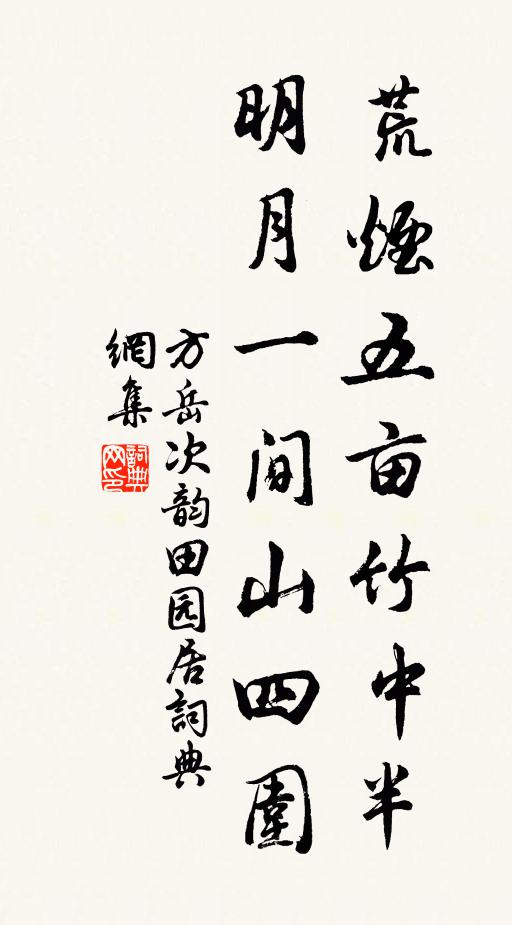 荒煙五亩竹中半
明月一间山四圍
方岳次韵田园居詞典
網集
詞典
网印